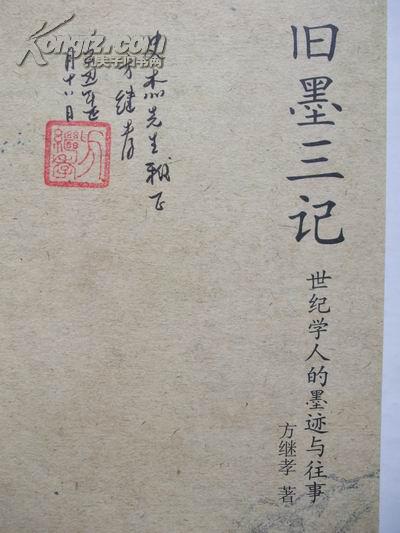 旧墨三记
世纪学人的墨迹与往事
方继孝 著
杰先生雅正
方继孝
月十八日
方繼孝
Kongfz.com
孔夫子旧书网